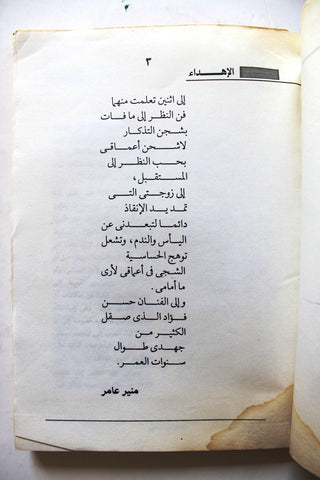 ٣
الإهداء
إلى اثنين تعلمت منهما
فن النظر إلى ما فات
بشجن التذكار
لاشحن أعماقى
بحب النظر إلى
المستقبل،
إلى زوجتى التى
تمد يد الإنقاذ
دائما لتبعدنى عن
اليأس والندم، وتشعل
توهج الحساسية
الشجى فى أعماقى لأرى
ما أمامى.
وإلى الفنان حسن
فؤاد الذى صقل
الكثير من
جهدى طوال
سنوات العمر.
منير عامر